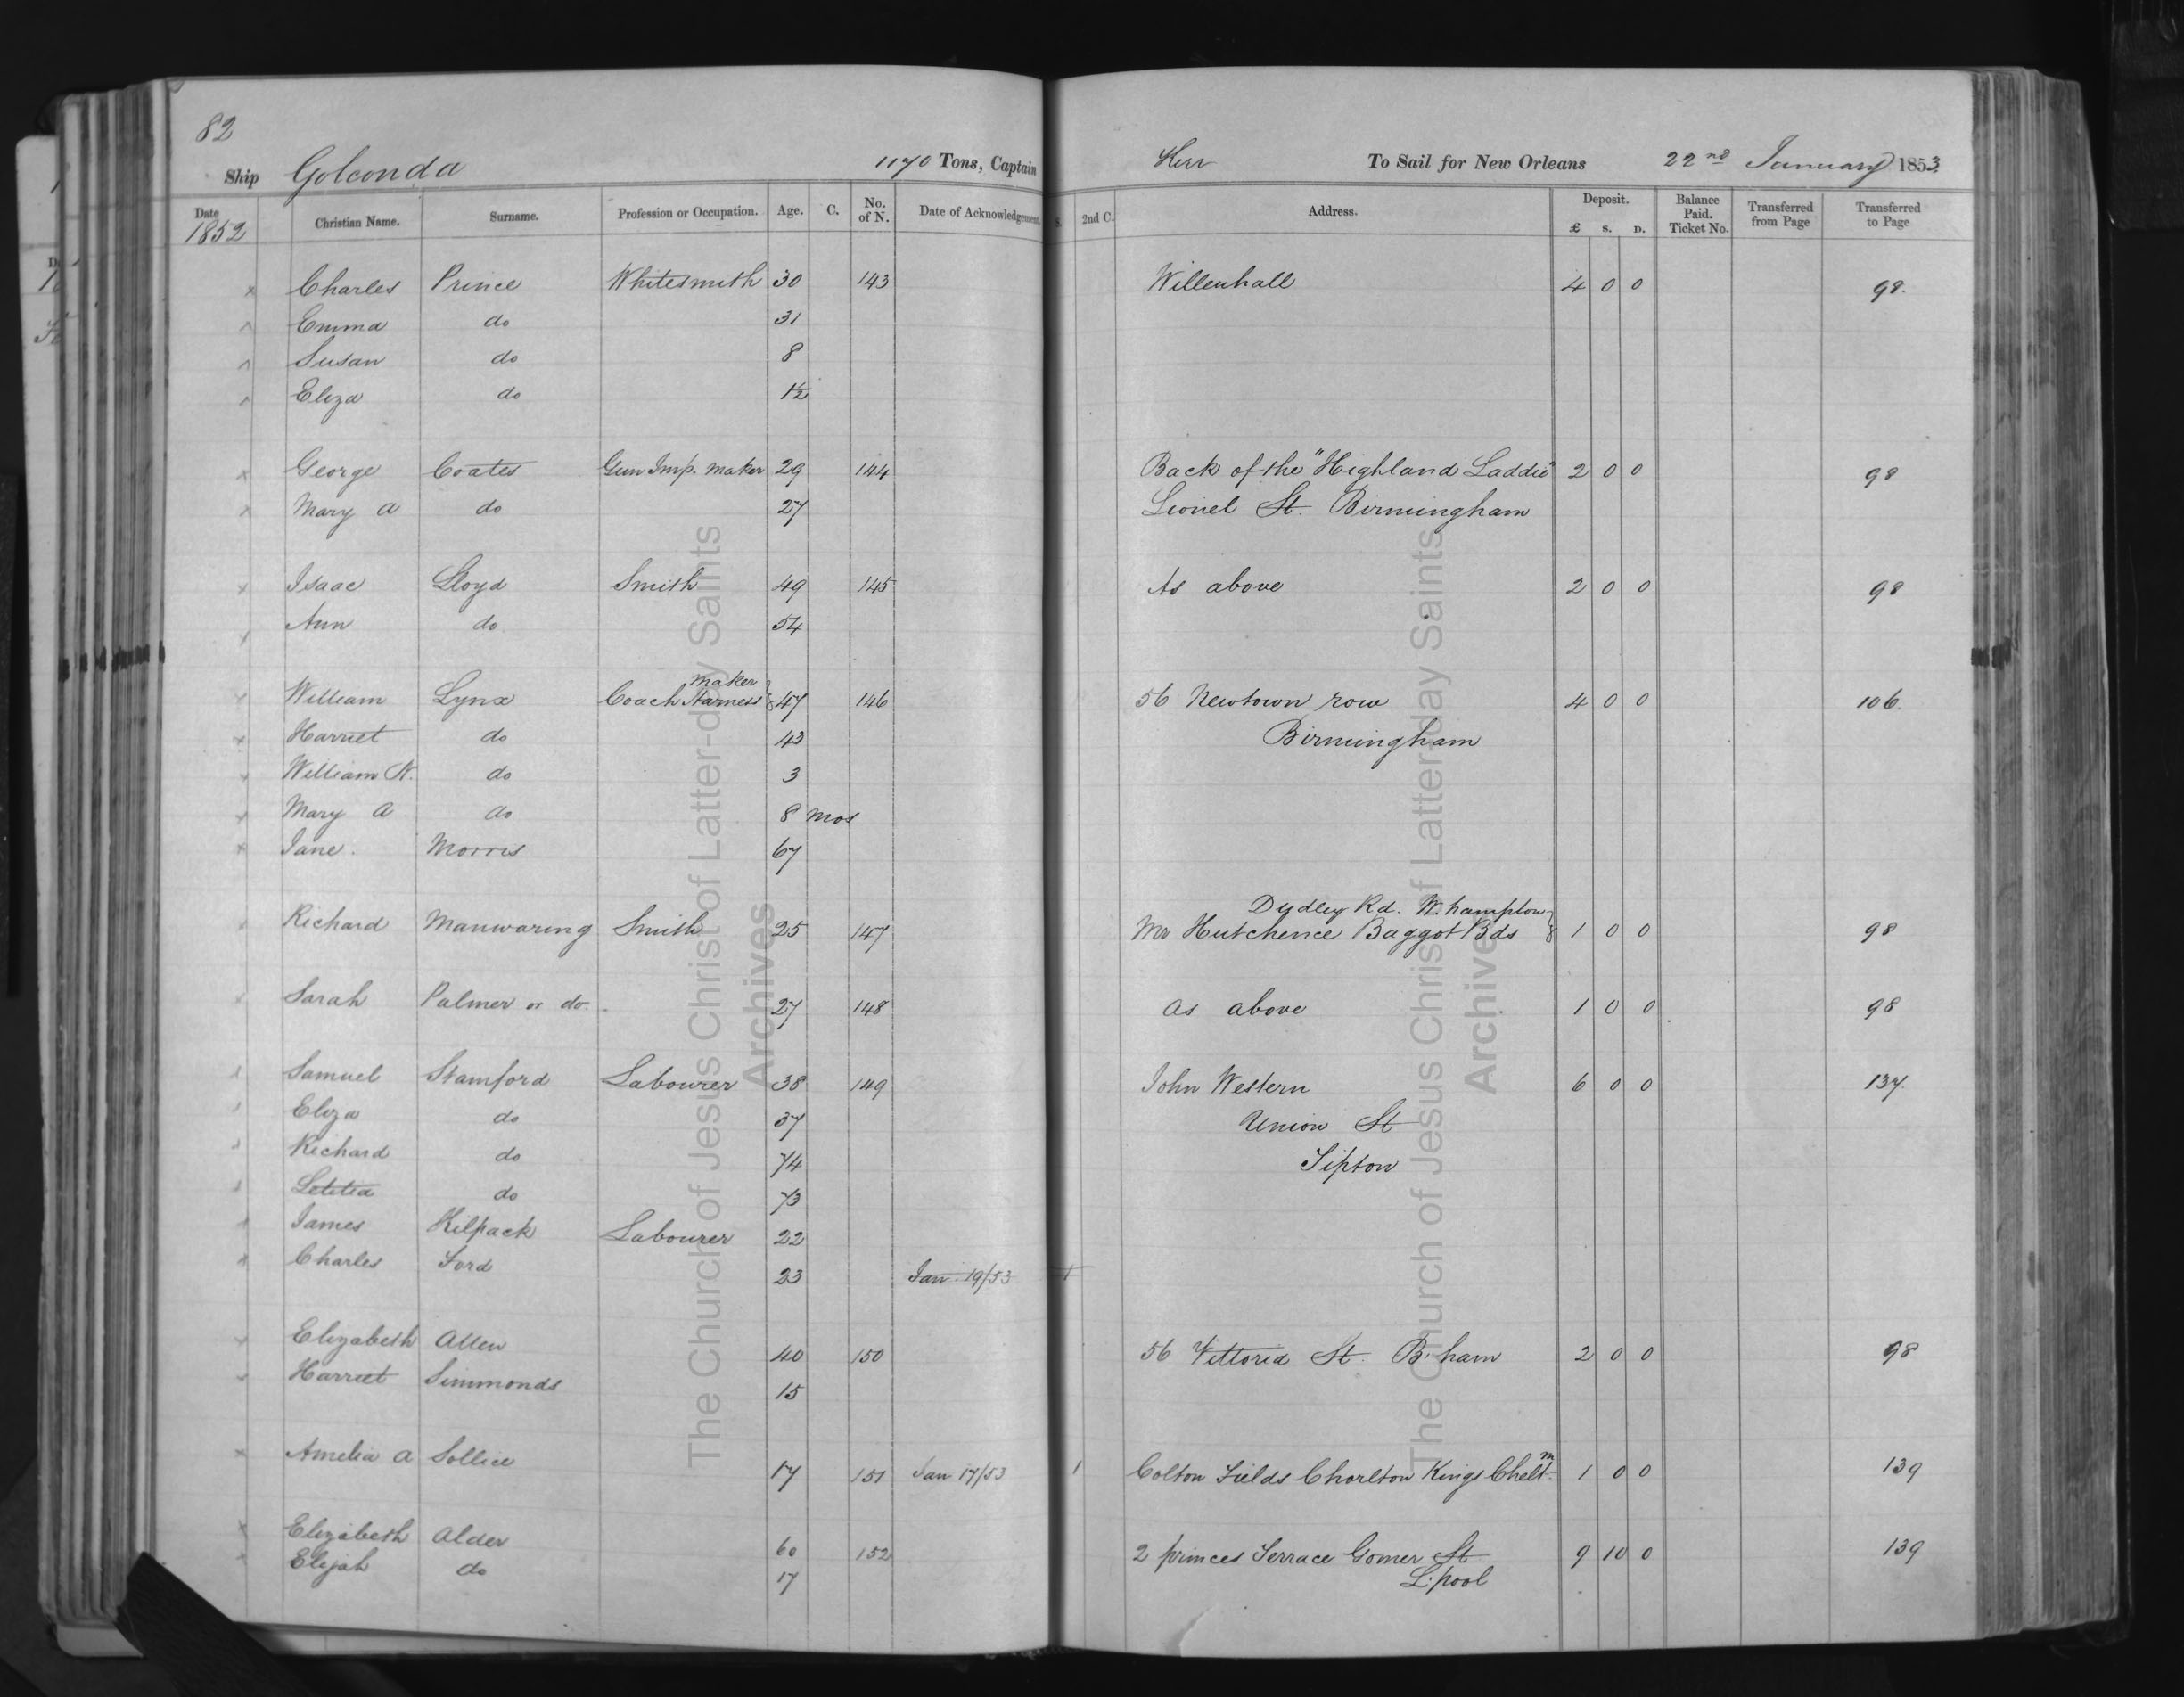 82
Ship Golconda 1170 Tons, Captain Kerr To Sail for New Orleans 22nd January 1853
Date 1852 Christian Name. Surname. Profession or Occupation. Age. C. No. of N. Date of Acknowledgement. S. 2nd C. Address. Deposit. £ S. D. Balance Paid. Ticket No. Transferred from Page Transferred to Page
x Charles Prince Whitesmith 30 143 Willenhall 4 0 0 98.
Emma do 31
Susan do 8
Eliza do 1½
x George Coates Gun Imp. maker 29 144 Back of the "Highland Laddie" 2 0 0 98
x Mary A do 27 Lionel St. Birmingham
x Isaac Lloyd Smith 49 145 As above 2 0 0 98
x Ann do 54
x William Lynx Coach Harness maker 47 146 56 Newtown row 4 0 0 106.
x Harriet do 43 Birmingham
x William N. do 3
x Mary A do 8 mos
x Jane. Morris 67
Dudley Rd. W.hampton
x Richard Manwaring Smith 25 147 Mr Hutchence Baggot Bds 1 0 0 98
x Sarah Palmer or do. 27 148 As above 1 0 0 98
Samuel Stamford Labourer 38 149 John Western 6 0 0 137.
Eliza do 37 Union St
Richard do 74 Tipton
Letitia do 73
James Kilpack Labourer 22
x Charles Ford 23 Jan 19/53 1
x Elizabeth Allen 40 150 56 Vittoria St. B.ham 2 0 0 98
x Harriet Simmonds 15
x Amelia A Sollice 17 151 Jan 17/53 1 Colton Fields Charlton Kings Cheltm. 1 0 0 139
x Elizabeth Alder 60 152 2 princes Terrace Gomer St 9 10 0 139
x Elijah do 17 L.pool
The Church of Jesus Christ of Latter-day Saints
Archives
The Church of Jesus Christ of Latter-day Saints
Archives